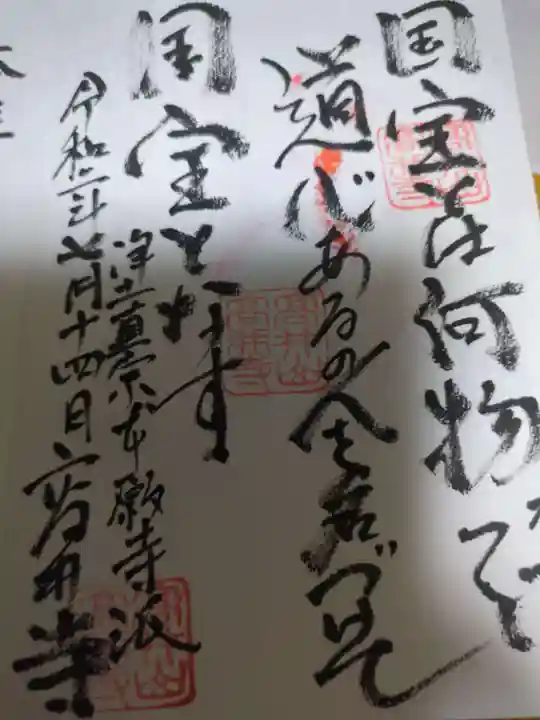 国宝とは何物ぞ
道心あるの人を名づけて
国宝と為す
浄土真宗本願寺派
令和二年七月十四日 寺